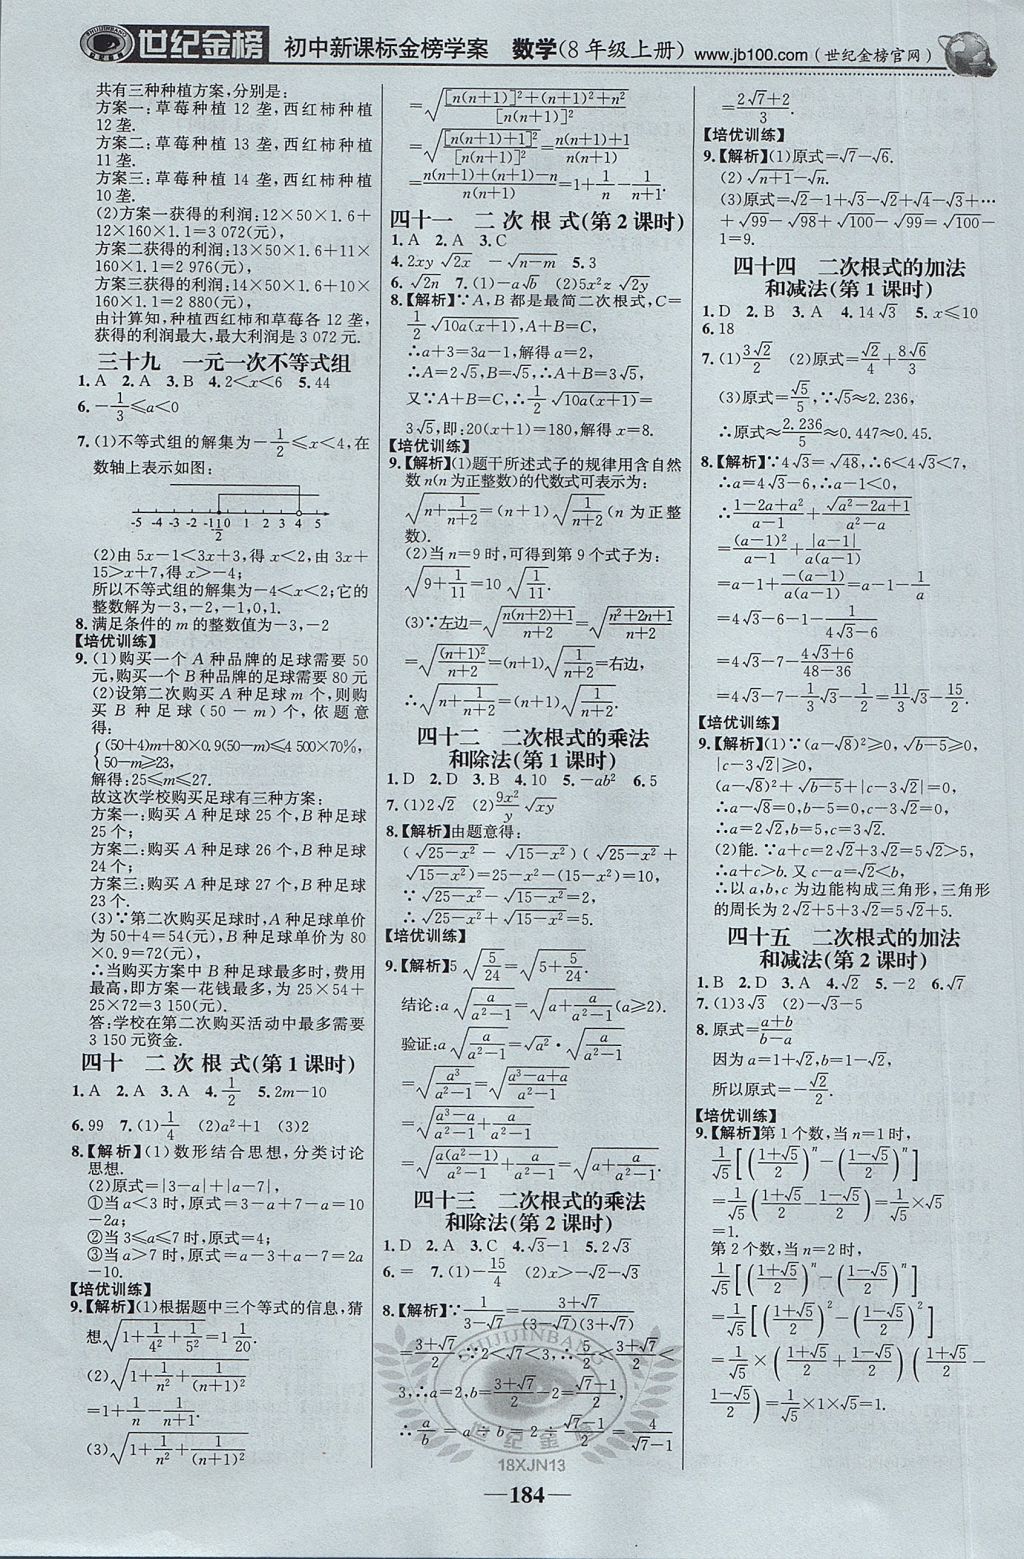 世纪金榜 初中新课标金榜学案 数学(8年级上册) www.jb100.com(世纪金榜官网)
共有三种种植方案,分别是:
方案一:草莓种植 12 垄,西红柿种植
12 垄.
方案二:草莓种植 13 垄,西红柿种植
11 垄.
方案三:草莓种植 14 垄,西红柿种植
10 垄.
(2)方案一获得的利润:12×50×1.6+
12×160×1.1=3 072(元),
方案二获得的利润:13×50×1.6+11×
160×1.1=2 976(元),
方案三获得的利润:14×50×1.6+10×
160×1.1=2 880(元),
由计算知,种植西红柿和草莓各 12 垄,
获得的利润最大,最大利润是 3 072 元.
三十九 一元一次不等式组
1.A 2.A 3.B 4.2<x<6 5.44
6.-1/3≤a<0
7.(1)不等式组的解集为-1/2≤x<4,在
数轴上表示如图:
-5 -4 -3 -2 -1 -1/2 0 1 2 3 4 5
(2)由 5x-1<3x+3,得 x<2,由 3x+
15>x+7,得 x>-4;
所以不等式组的解集为-4<x<2;它的
整数解为-3,-2,-1,0,1.
8.满足条件的 m 的整数值为-3,-2
【培优训练】
9.(1)购买一个 A 种品牌的足球需要 50
元,购买一个 B 种品牌的足球需要 80 元
(2)设第二次购买 A 种足球 m 个,则购
买 B 种足球(50-m)个,依题意
得:
{(50+4)m+80×0.9(50-m)≤4 500×70%,
50-m≥23,
解得:25≤m≤27.
故这次学校购买足球有三种方案:
方案一:购买 A 种足球 25 个,B 种足球
25 个;
方案二:购买 A 种足球 26 个,B 种足球
24 个;
方案三:购买 A 种足球 27 个,B 种足球
23 个.
(3)∵第二次购买足球时,A 种足球单价
为 50+4=54(元),B 种足球单价为 80
×0.9=72(元),
∴当购买方案中 B 种足球最多时,费用
最高,即方案一花钱最多,为 25×54+
25×72=3 150(元).
答:学校在第二次购买活动中最多需要
3 150 元资金.
四十 二次根式(第 1 课时)
1.A 2.A 3.A 4.1/2 5.2m-10
6.99 7.(1)1/4 (2)a²+1 (3)2
8.【解析】(1)数形结合思想,分类讨论
思想.
(2)原式=|3-a|+|a-7|,
①当 a<3 时,原式=3-a+7-a=10
-2a;
②当 3≤a≤7 时,原式=4;
③当 a>7 时,原式=a-3+a-7=2a
-10.
【培优训练】
9.【解析】(1)根据题中三个等式的信息,猜
想√(1+1/4²+1/5²)=1 1/20.
(2)√(1+1/n²+1/(n+1)²)
=1+1/n-1/(n+1).
(3)√(1+1/n²+1/(n+1)²)
=√([n(n+1)]²+(n+1)²+n²)/[n(n+1)]²
=√([n(n+1)+1]²/[n(n+1)]²)=(n(n+1)+1)/(n(n+1))
=(n(n+1)+(n+1)-n)/(n(n+1))=1+1/n-1/(n+1).
四十一 二次根式(第 2 课时)
1.A 2.A 3.C
4.2xy√(2x) -√(n-m) 5.3
6.√(2n) 7.(1)-a√b (2)5x²z√(2y)
8.【解析】∵A,B 都是最简二次根式,C=
1/2√(10a(x+1)),A+B=C,
∴a+3=3a-1,解得 a=2,
∴A=2√5,B=√5,∴A+B=3√5,
又∵A+B=C,∴1/2√(10a(x+1))=
3√5,即:20(x+1)=180,解得 x=8.
【培优训练】
9.【解析】(1)题干所述式子的规律用含自然
数 n(n 为正整数)的代数式可表示为:
√(n+1/(n+2))=(n+1)√(1/(n+2))(n 为正整
数).
(2)当 n=9 时,可得到第 9 个式子为:
√(9+1/11)=10√(1/11).
(3)∵左边=√((n(n+2)+1)/(n+2))=√((n²+2n+1)/(n+2))
=√((n+1)²/(n+2))=(n+1)√(1/(n+2))=右边,
∴√(n+1/(n+2))=(n+1)√(1/(n+2)).
四十二 二次根式的乘法
和除法(第 1 课时)
1.D 2.D 3.B 4.10 5.-ab² 6.5
7.(1)2√2 (2)9x²/y √(xy)
8.【解析】由题意得:
(√(25-x²)-√(15-x²))(√(25-x²)+
√(15-x²))=25-x²-(15-x²)=10,
∵√(25-x²)-√(15-x²)=2,
∴√(25-x²)+√(15-x²)=5.
【培优训练】
9.【解析】5√(5/24)=√(5+5/24).
结论:a√(a/(a²-1))=√(a+a/(a²-1))(a≥2).
验证:a√(a/(a²-1))=√(a²)·√(a/(a²-1))
=√(a³/(a²-1))=√((a³-a+a)/(a²-1))
=√((a³-a)/(a²-1)+a/(a²-1))
=√(a(a²-1)/(a²-1)+a/(a²-1))=√(a+a/(a²-1)).
四十三 二次根式的乘法
和除法(第 2 课时)
1.D 2.A 3.C 4.√3-1 5.2√3
6.= 7.(1)-15/4 (2)x>-√2-√3
8.【解析】∵1/(3-√7)=(3+√7)/((3-√7)(3+√7))
=(3+√7)/2,∵2<√7<3,∴5/2<(3+√7)/2<
3,∴a=2,b=(3+√7)/2-2=(√7-1)/2,
∴a/b=a÷b=2÷(√7-1)/2=4/(√7-1)
=(2√7+2)/3.
【培优训练】
9.【解析】(1)原式=√7-√6.
(2)√(n+1)-√n.
(3)原式=√2-1+√3-√2+√4-√3+…
+√99-√98+√100-√99=√100-
1=9.
四十四 二次根式的加法
和减法(第 1 课时)
1.D 2.B 3.A 4.14√3 5.x≤10
6.18
7.(1)3√2/2 (2)原式=√2/4+8√6/3
(3)原式=√5/5,∵√5≈2.236,
∴原式≈2.236/5≈0.447≈0.45.
8.【解析】∵4√3=√48,∴6<4√3<7,
∴a=4√3-6,∴a-1<0,
∴(1-2a+a²)/(a-1)+√(a²-2a+1)/(a²-a)
=(a-1)²/(a-1)+|a-1|/(a(a-1))
=a-1+-(a-1)/(a(a-1))=a-1-1/a
=4√3-6-1-1/(4√3-6)
=4√3-7-(4√3+6)/(48-36)
=4√3-7-1/3√3-1/2=11/3√3-15/2.
【培优训练】
9.【解析】(1)∵(a-√8)²≥0,√(b-5)≥0,
|c-3√2|≥0,
(a-√8)²+√(b-5)+|c-3√2|=0,
∴a-√8=0,b-5=0,c-3√2=0,
∴a=2√2,b=5,c=3√2.
(2)能.∵a+c=2√2+3√2=5√2>5,
∴a+c>b.又 c-a=√2<b,
∴以 a,b,c 为边能构成三角形,三角形
的周长为 2√2+5+3√2=5√2+5.
四十五 二次根式的加法
和减法(第 2 课时)
1.B 2.D 3.A 4.√2 5.-2 6.√7
7.(1)3√3 (2)-√3-5
8.原式=(a+b)/(b-a)
因为 a=1+√2,b=1-√2,
所以原式=-√2/2.
【培优训练】
9.【解析】第 1 个数,当 n=1 时,
1/√5[((1+√5)/2)ⁿ-((1-√5)/2)ⁿ]
=1/√5((1+√5)/2-(1-√5)/2)=1/√5×√5
=1.
第 2 个数,当 n=2 时,
1/√5[((1+√5)/2)ⁿ-((1-√5)/2)ⁿ]
=1/√5[((1+√5)/2)²-((1-√5)/2)²]
=1/√5×((1+√5)/2+(1-√5)/2)((1+√5)/2-
(1-√5)/2)=1/√5×1×√5=1.
SHIJIJINBANG
世纪金榜
18XJN13
—184—